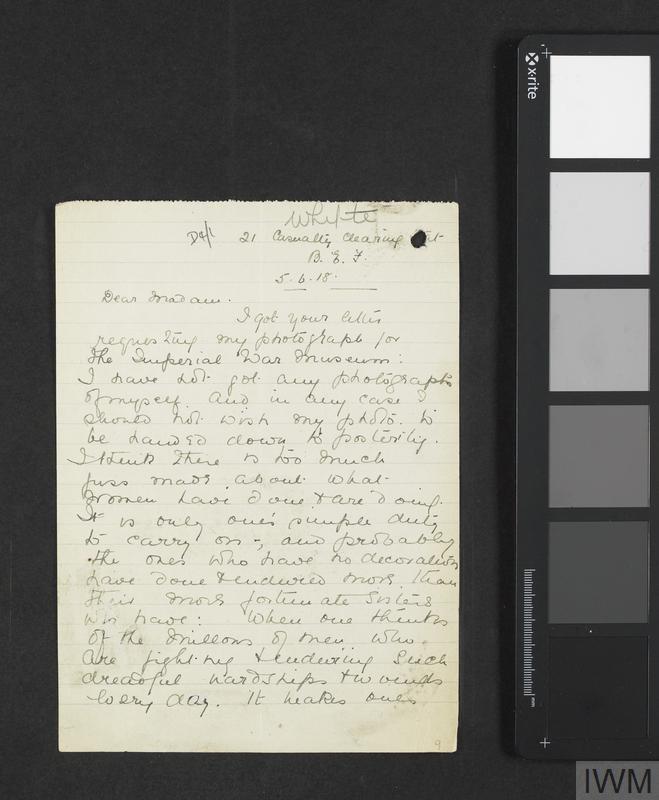 Whyte
21 Casualty Clearing
B. E. F.
5.6.18.
Dear Madam.
I got your letter
requesting my photograph for
the Imperial War Museum:
I have not got any photographs
of myself. and in any case I
should not wish my photo. to
be handed down to posterity.
I think there is too much
fuss made about what
women have done & are doing.
It is only one's simple duty
to carry on -, and probably
the ones who have no decorations
have done & endured more than
their more fortunate sisters
who have: When one thinks
of the millions of men who
are fighting & enduring such
dreadful hardships & wounds
every day. It makes one's
9
x-rite
IWM